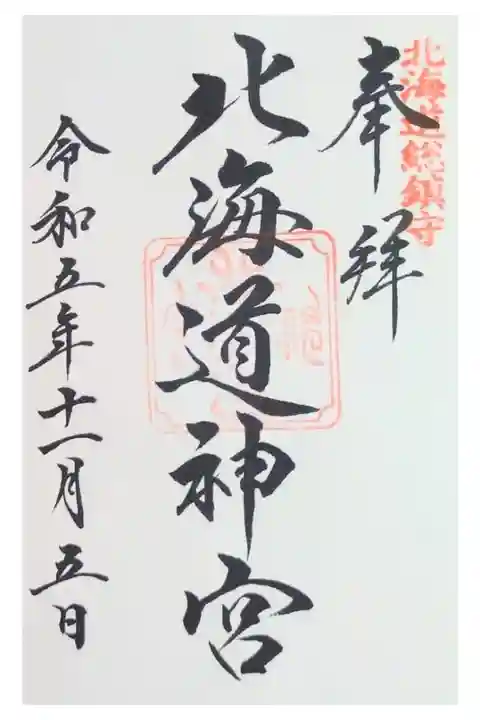 北海道総鎮守
奉拝
北海道神宮
令和五年十一月五日